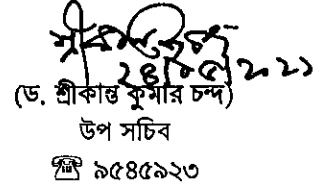 শ্রীকান্ত চন্দ
২৪/০৫/২০২১
(ড. শ্রীকান্ত কুমার চন্দ)
উপ সচিব
☎ ৯৫৪৫৯২৩